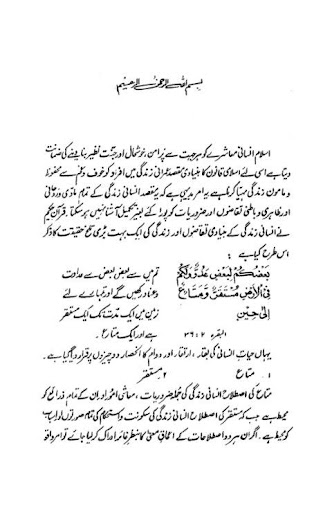 بسم اللہ الرحمٰن الرحیم
اسلام انسانی معاشرے کو ہر جہت سے پرامن، خوشحال اور جنت نظیر بنا دینے کی ضمانت
دیتا ہے اسی لئے اسلامی قانون کا بنیادی مقصد ہی انسانی زندگی میں افراد کو خوف و غم سے محفوظ
و مامون زندگی مہیا کرنا ہے یہ امر بدیہی ہے کہ یہ مقصد انسانی زندگی کے تمام مادی و روحانی
اور ظاہری و باطنی تقاضوں اور ضروریات کو پورا کئے بغیر تکمیل آشنا نہیں ہو سکتا۔ قرآن حکیم
نے انسانی زندگی کے بنیادی تقاضوں اور زندگی کی ایک بہت بڑی تلخ حقیقت کا ذکر
اس طرح کیا ہے :
بَعْضُكُمْ لِبَعْضٍ عَدُوٌّ وَلَكُمْ
تم میں سے بعض بعض سے عداوت
فِي الْأَرْضِ مُسْتَقَرٌّ وَّمَتَاعٌ
و عناد رکھیں گے اور تمہارے لئے
إِلَىٰ حِينٍ
زمین میں ایک مدت تک ایک مستقر
البقرہ ۳۶:۲
ہے اور ایک متاع۔
یہاں حیات انسانی کی بقاء، ارتقاء اور دوام کا انحصار دو چیزوں پر قرار دیا گیا ہے۔
۱۔ متاع ۲۔ مستقر
متاع کی اصطلاح انسانی زندگی کی جملہ ضروریات، معاشی امور اور ان کے تمام ذرائع کو
محیط ہے جب کہ مستقر کی اصطلاح انسانی زندگی کی سکونت و استحکام کی تمام صورتوں اور اسباب
کو محیط ہے۔ اگر ان ہر دو اصطلاحات کے اعماق معنی کا بنظر غائر ادراک کر لیا جائے تو امر واقعہ